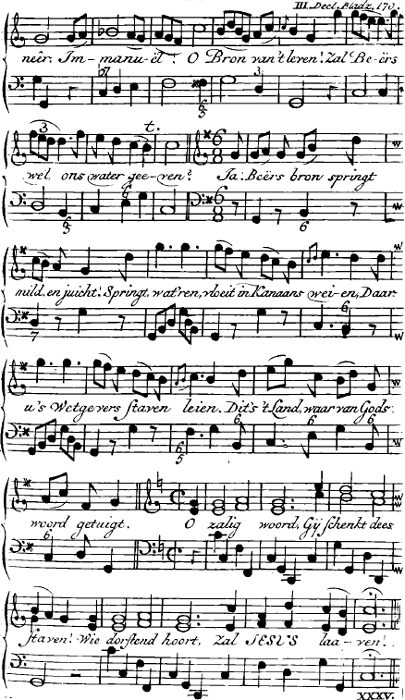 III. Deel. Bladz. 170.
nêir. Im-manuël! O Bron van't leven! Zal Beërs
wel ons water gee-ven?
Ja: Beërs bron springt
mild, en juicht: Springt, wat'ren, vloeit in Kanaans wei-en, Daar
u's Wetgevers staven leien. Dit's 't Land, waar van Gods
woord getuigt.
O zalig woord, Gij schenkt dees
staven! Wie dorstend hoort, zal JESUS laa-ven!
XXXV.